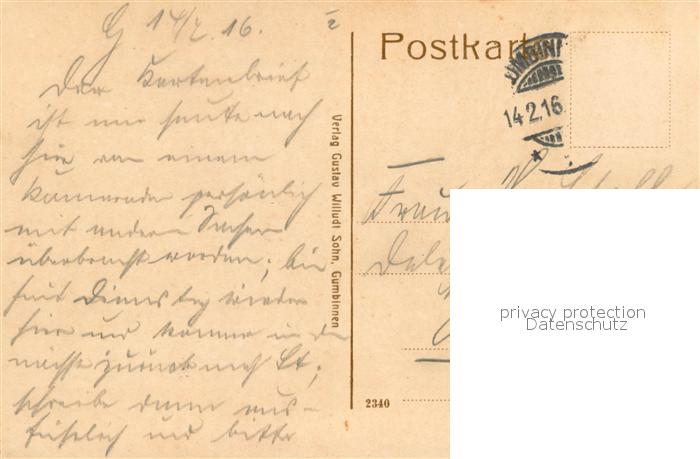 G 14/2. 16.
Der Kartenbrief
ist mir heute nach
hier von einem
Kameraden persönlich
mit anderen Sachen
überbracht worden; bin
seit Dienstag wieder
hier und komme in der
nächste zurück nach
schreibe dann aus-
führlich und bitte
Verlag Gustav Willudt Sohn, Gumbinnen
Postkarte
14.2.16
Frau
2340
privacy protection
Datenschutz